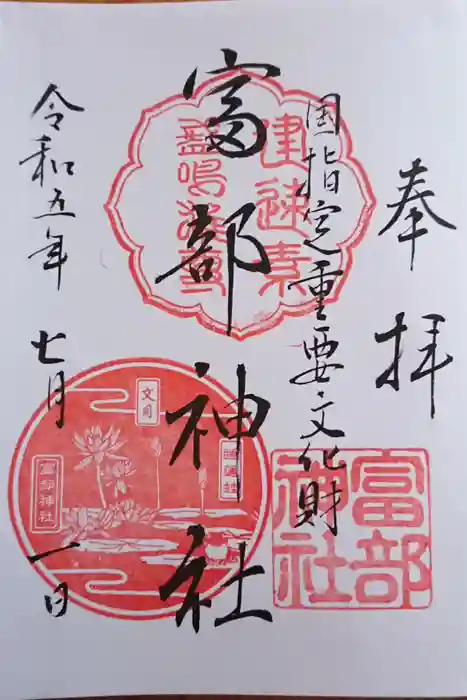 奉拝
国指定重要文化財
富部神社
令和五年七月一日
建速素
盞鳴尊
文月
富部神社
富部
神社